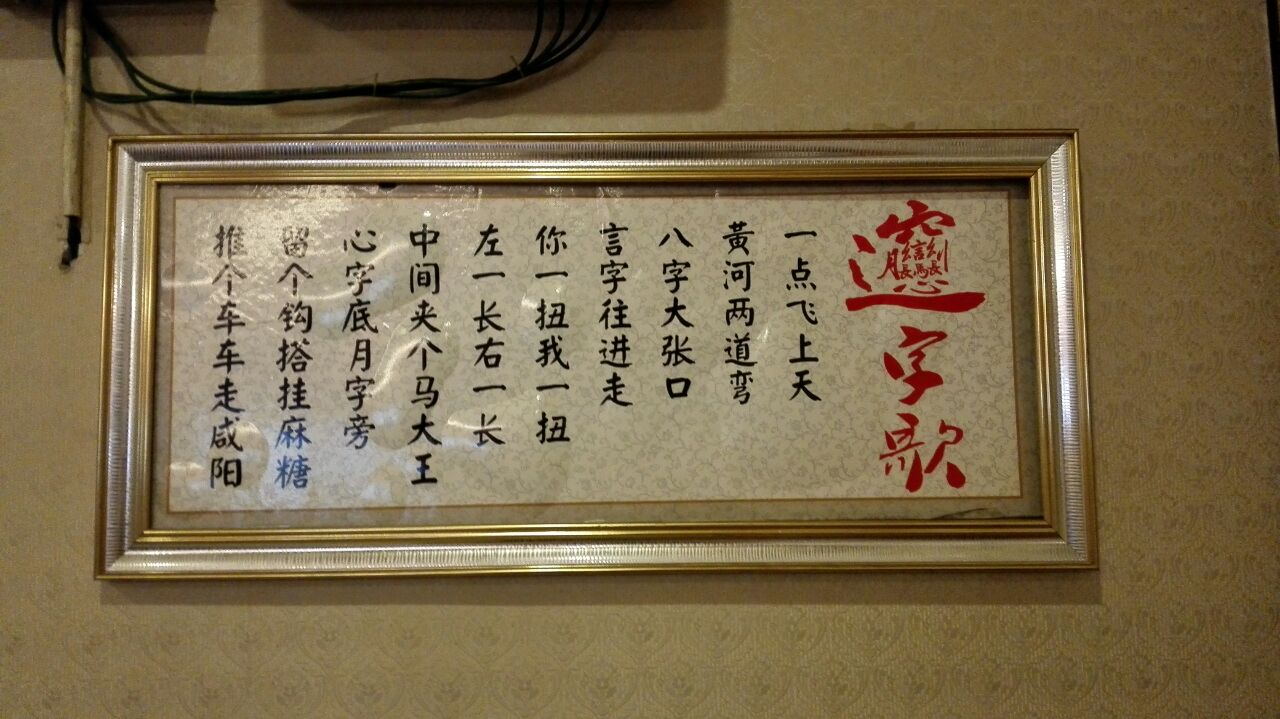 𰻞字歌
一点飞上天
黄河两道弯
八字大张口
言字往进走
你一扭我一扭
左一长右一长
中间夹个马大王
心字底月字旁
留个钩搭挂麻糖
推个车车走咸阳